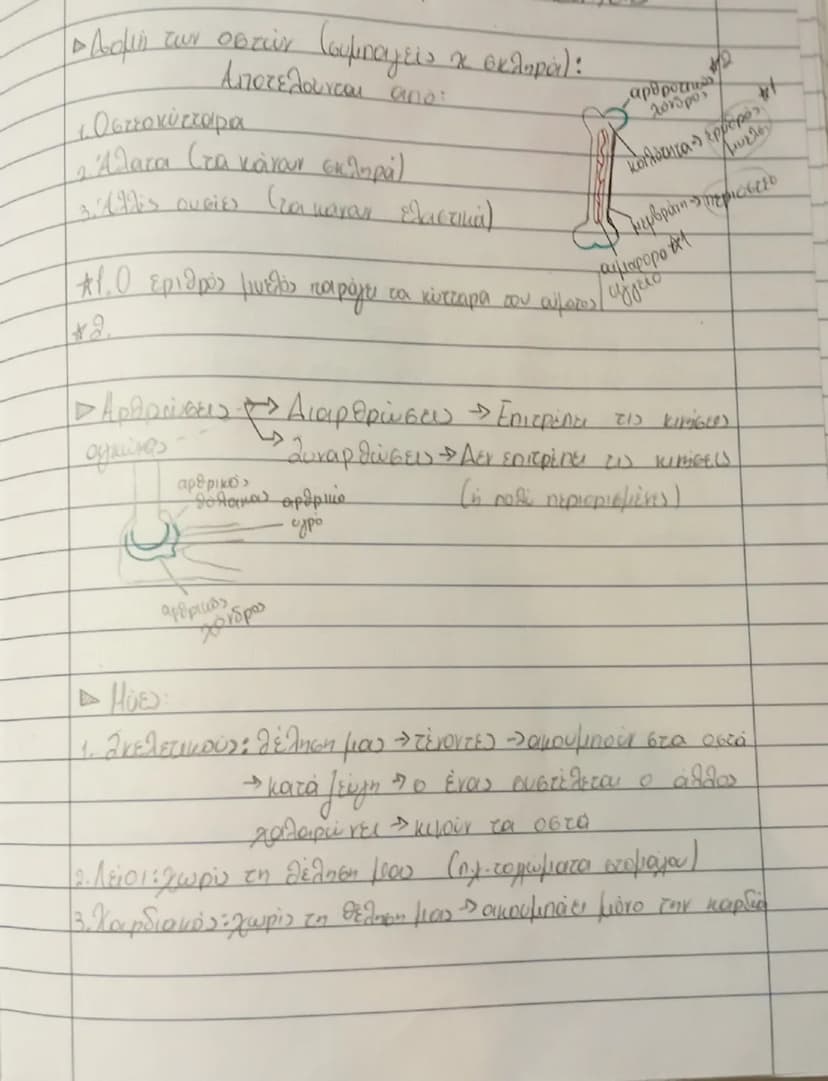 ▷ Δομή των οστών (συμπαγείς κ σκληρά):
Αποτελούνται από:
1. Οστεοκύτταρα
2. Άλατα (τα κάναν σκληρά)
3. Άλλες ουσίες (τα κάναν ελαστικά)
*2
αρθρικός
χόνδρος
*1
κοιλότητα → ερυθρός
μυελός
μεμβράνη → περιόστεο
αιμοφόρο *1
αγγείο
*1. Ο εριθρός μυελός παράγει τα κύτταρα του αίματος
*2.
▷ Αρθρώσεις → Διαρθρώσεις → Επιτρέπει τις κινήσεις
→ Συναρθώσεις → Δεν επιτρέπει τις κινήσεις
(ή πολύ περιορισμένες)
αρθρικός
θύλακας αρθρικό
υγρό
αρθρικός
χόνδρος
▷ Μύες:
1. Σκελετικούς: θέληση μας → τένοντες → ακουμπούν στα οστά
→ κατά ζεύγη → ο ένας συστέλεται ο άλλος
χαλαρώνει → κινούν τα οστά
2. Λείοι: χωρίς τη θέληση μας (πχ. τοιχώματα στομάχου)
3. Καρδιακός: χωρίς τη θέληση μας → ακουμπάει μόνο την καρδιά